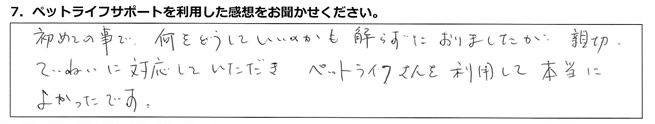 7. ペットライフサポートを利用した感想をお聞かせください。
初めての事で、何をどうしていいのかも解らずにおりましたが 親切、
ていねいに対応していただき ペットライフさんを利用して本当に
よかったです。